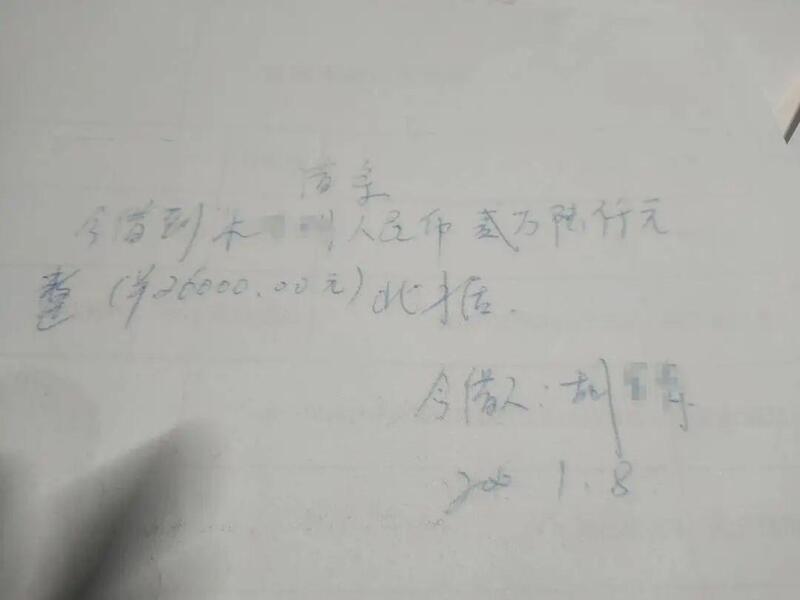 借条
今借到 人民币 贰万陆仟元
整 (￥26000.00元) 此据.
今借人:
1.8